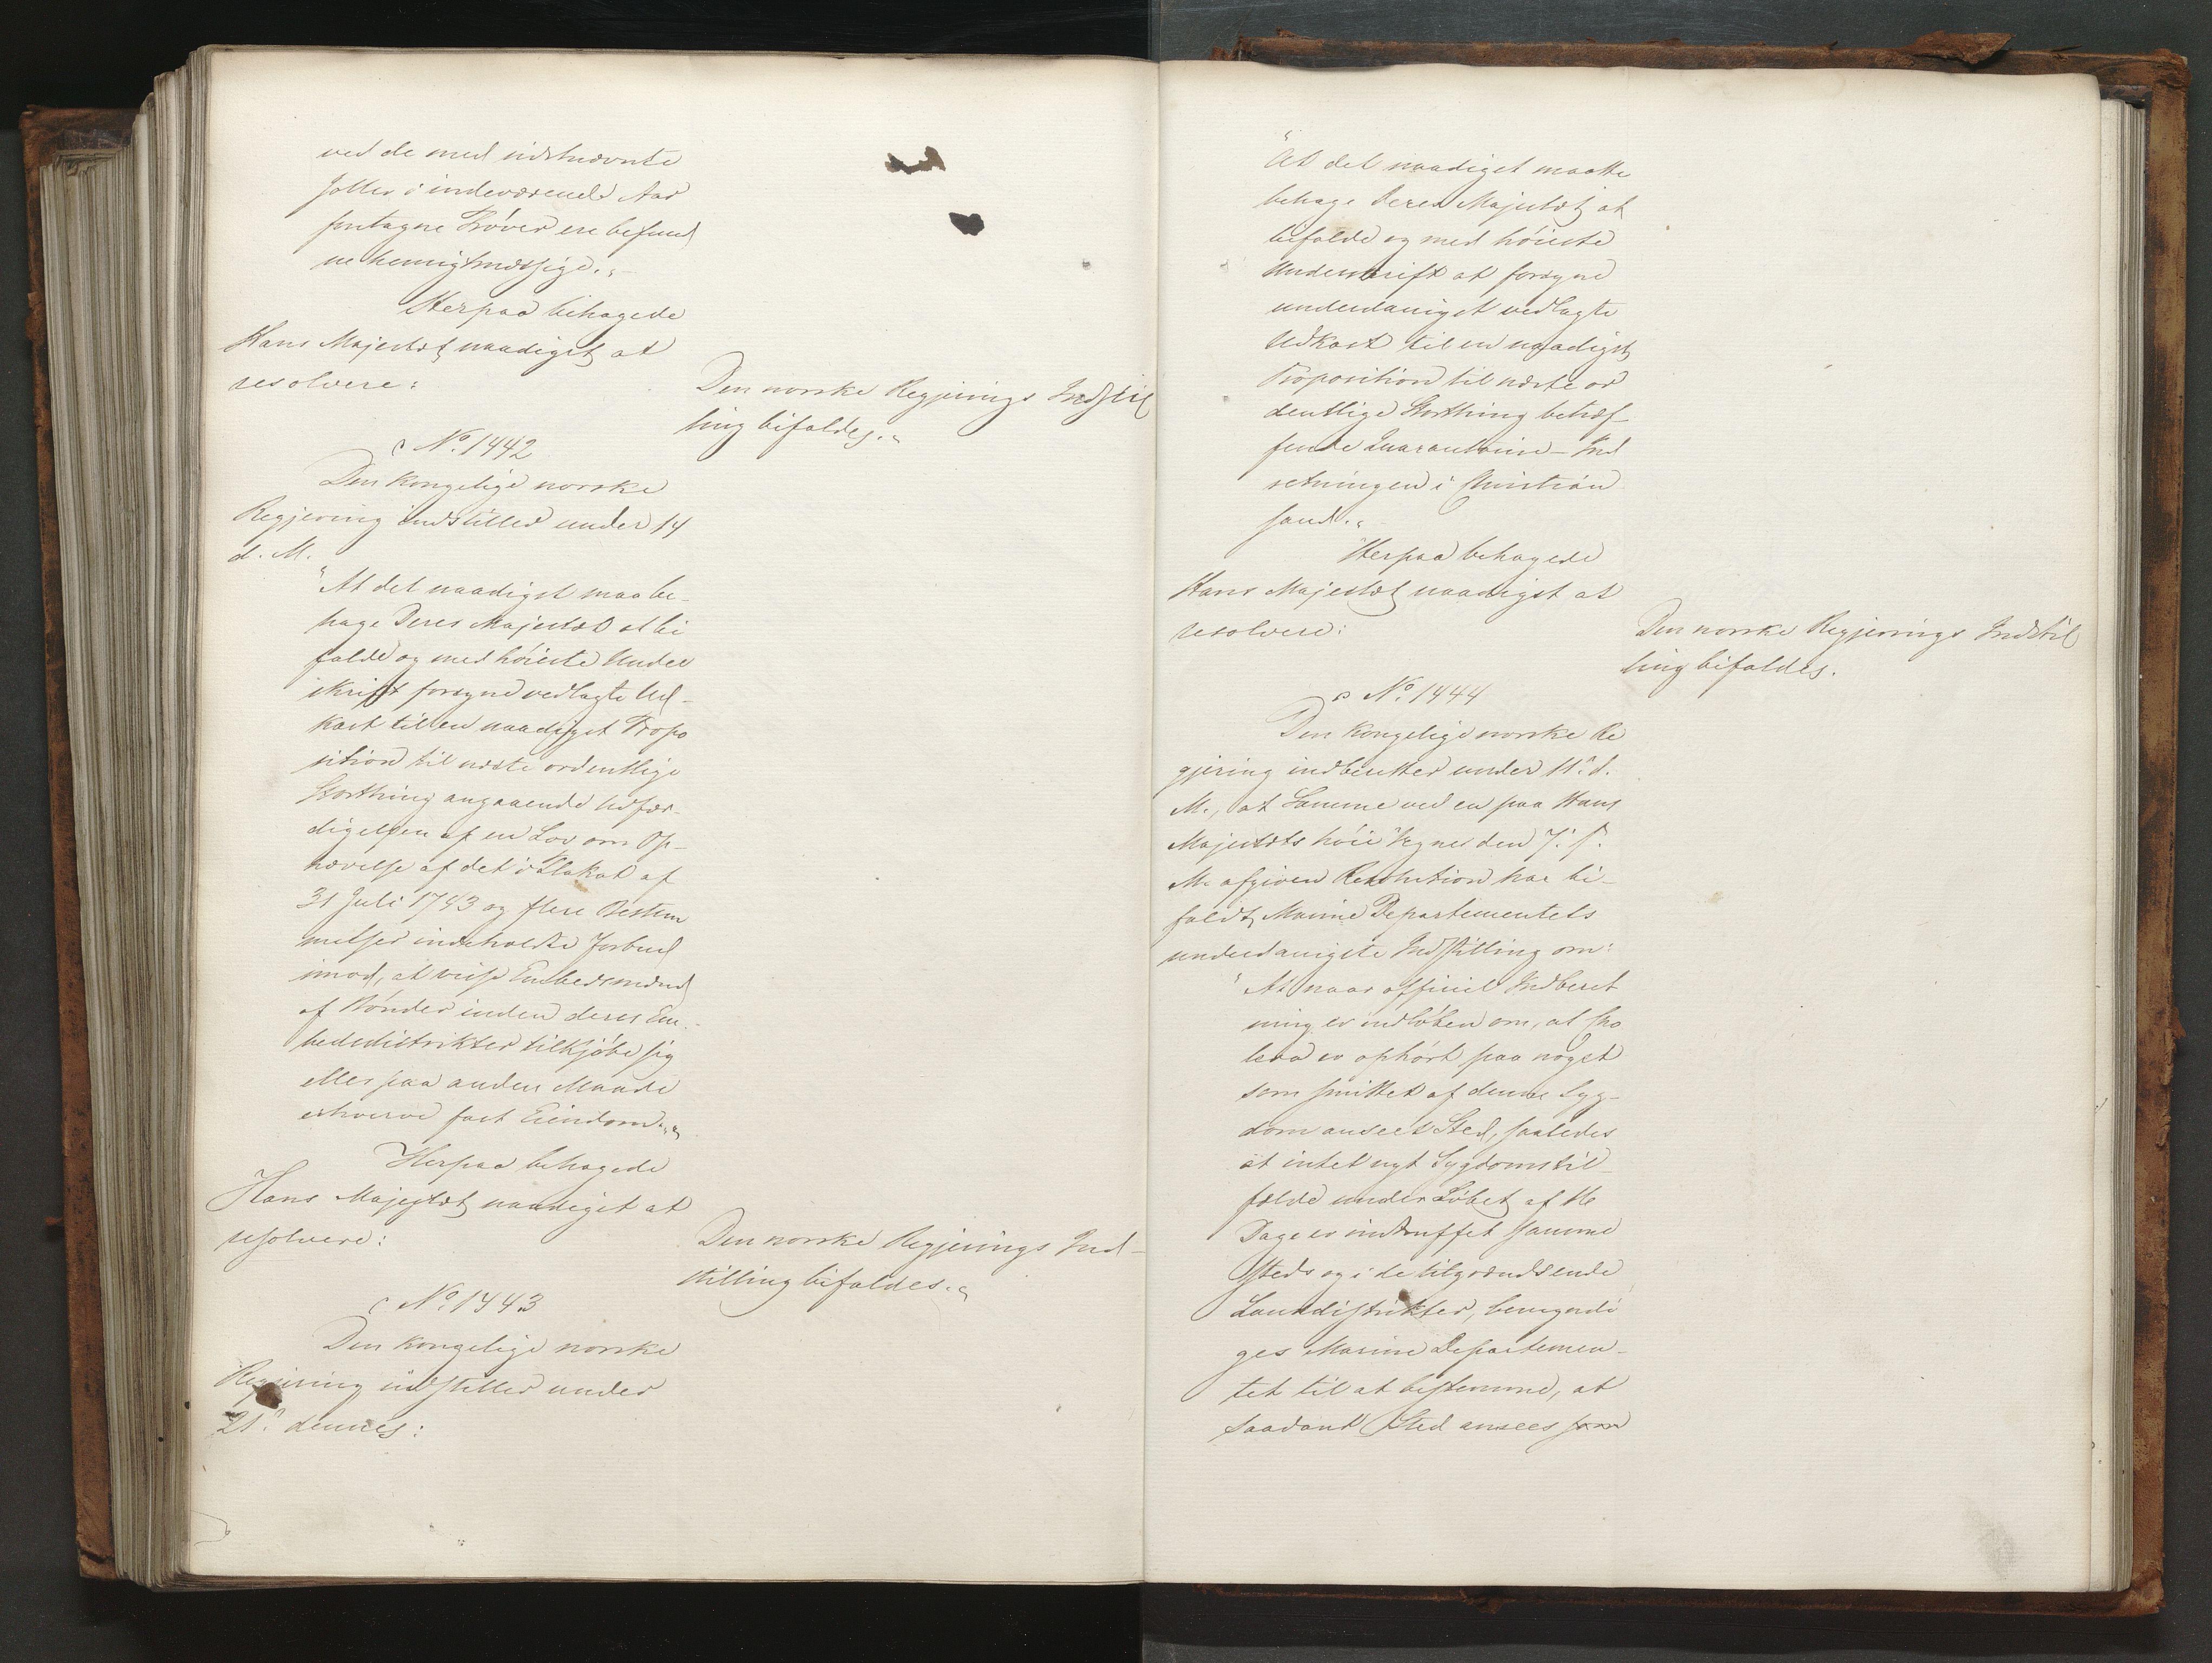 ved de med sidstnævnte
Joller i indeværende Aar
foretagne Prøver ere befund
ne hensigtmæssige."
Herpaa behagede
Hans Majestæt naadigst at
resolvere:
Den norske Regjerings Indstil
ling bifaldes."
No. 1442
Den kongelige norske
Regjering indstiller under 14
d. M.
"At det naadigst maa be-
hage Deres Majestæt at bi
falde og med høieste Under
skrift forsyne vedlagte Ud-
kast til en naadigst Propo
sition til næste ordentlige
Storthing angaaende Udfær-
digelsen af en Lov om Op-
hævelse af det i Plakat af
31 Juli 1743 og flere Bestem
melser indeholdte Forbud
imod, at visse Embedsmænd
af Bønder inden deres Em-
bedsdistrikter tilkjøbe sig
eller paa anden Maade
erhverve fast Eiendom."
Herpaa behagede
Hans Majestæt naadigst at
resolvere:
Den norske Regjerings Ind-
stilling bifaldes."
No. 1443
Den kongelige norske
Regjering indstiller under
21. dennes:
"At det naadigst maatte
behage Deres Majestæt at
bifalde og med høieste
Underskrift at forsyne
underdanigst vedlagte
Udkast til en naadigst
Proposition til næste or
dentlige Storthing betræf-
fende Quarantaine-Ind
retningen i Christian
sand."
Herpaa behagede
Hans Majestæt naadigst at
resolvere:
Den norske Regjerings Indstil
ling bifaldes.
No. 1444
Den kongelige norske Re
gjering indberetter under 11. d.
M., at Samme ved en paa Hans
Majestæts høie Vegne den 7. s.
M. afgiven Resolution har bi-
faldt Marine Departementets
underdanigste Indstilling om:
"At naar officiel Indberet
ning er indløben om, at Cho
lera er ophørt paa noget
som smittet af denne Syg-
dom anseet Sted, saaledes
at intet nyt Sygdomstil-
fælde under Løbet af 16
Dage er indtruffet samme
steds og i de tilgrændsende
Landdistrikter, bemyndi
ges Marine Departemen-
tet til at bestemme, at
saadant Sted ansees som